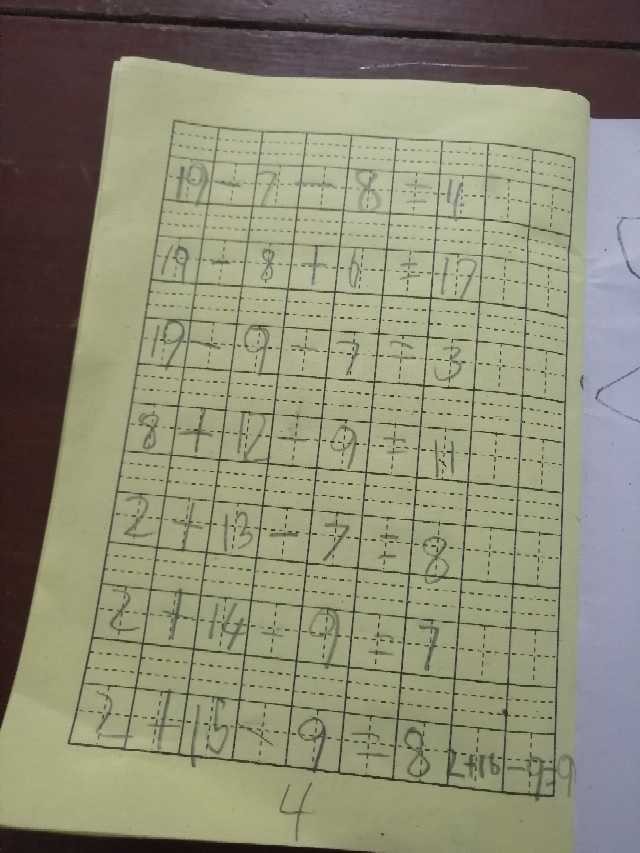 19-7-8=4
19-8+6=17
19-9-7=3
8+12-9=11
2+13-7=8
2+14-9=7
2+15-9=8 2+16-9=9
4